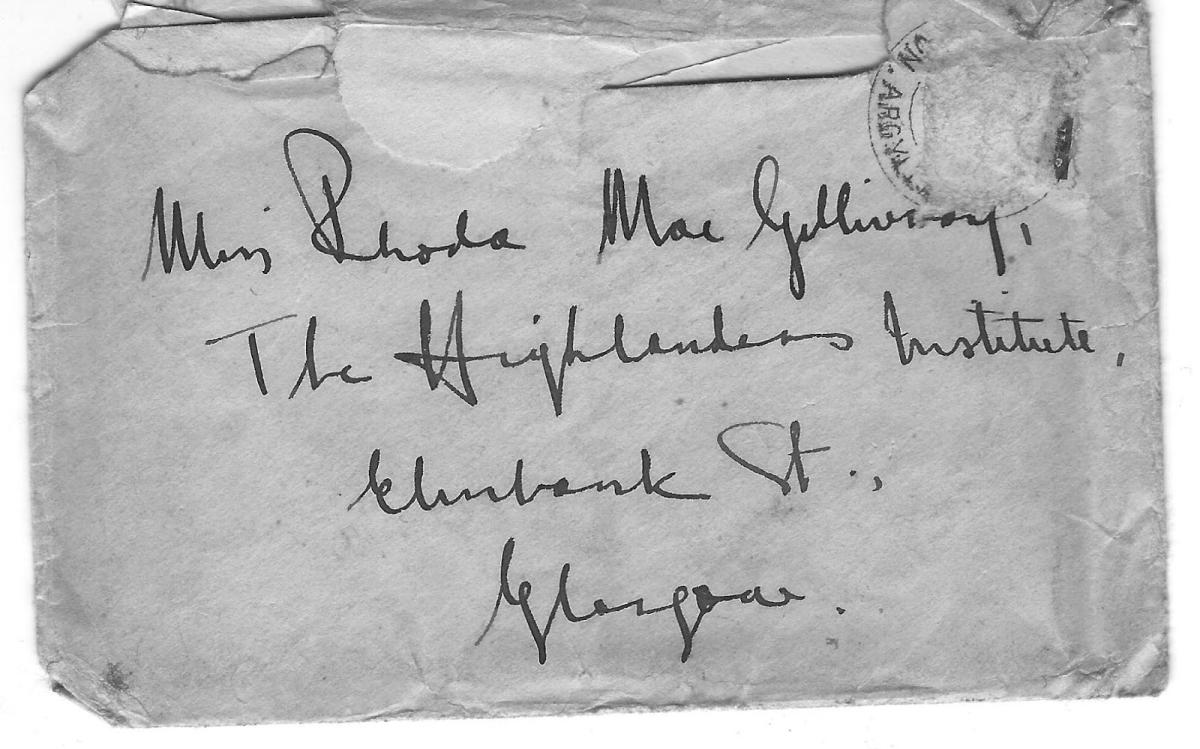 N. ARGYLL
Miss Rhoda Mac Gillivray,
The Highlanders Institute,
Elmbank St.,
Glasgow.